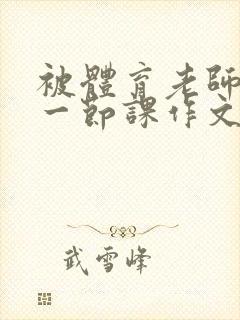 被體育老師
一節課作文
武雪峰